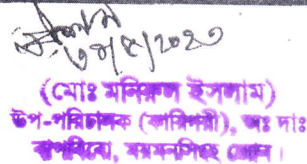 ৩০/৫/২০২৩
(মোঃ মনিরুল ইসলাম)
উপ-পরিচালক (কারিগরী), অঃ দাঃ
বাপবিবো, ময়মনসিংহ জোন।